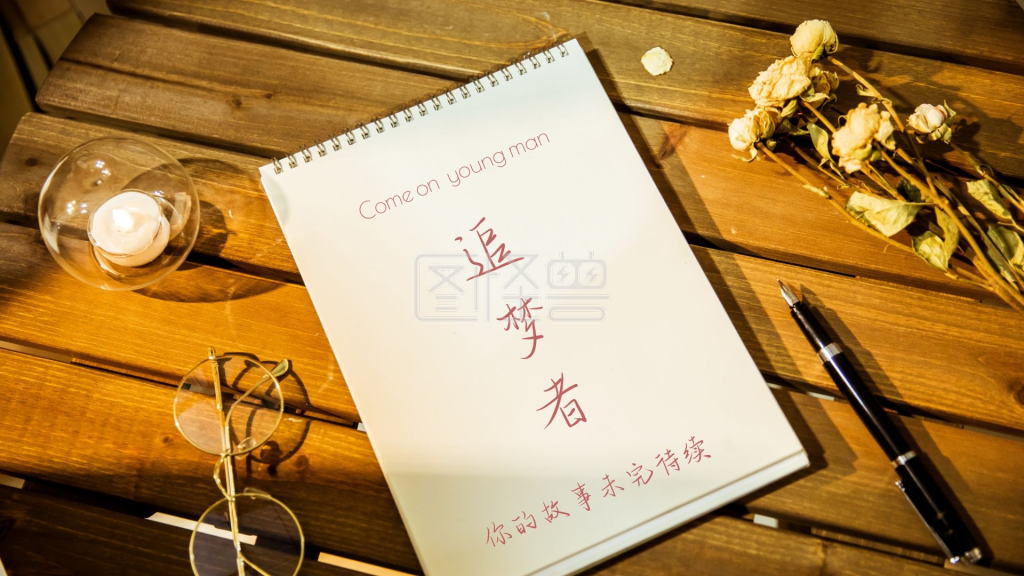 Come on young man
追梦者
你的故事未完待续